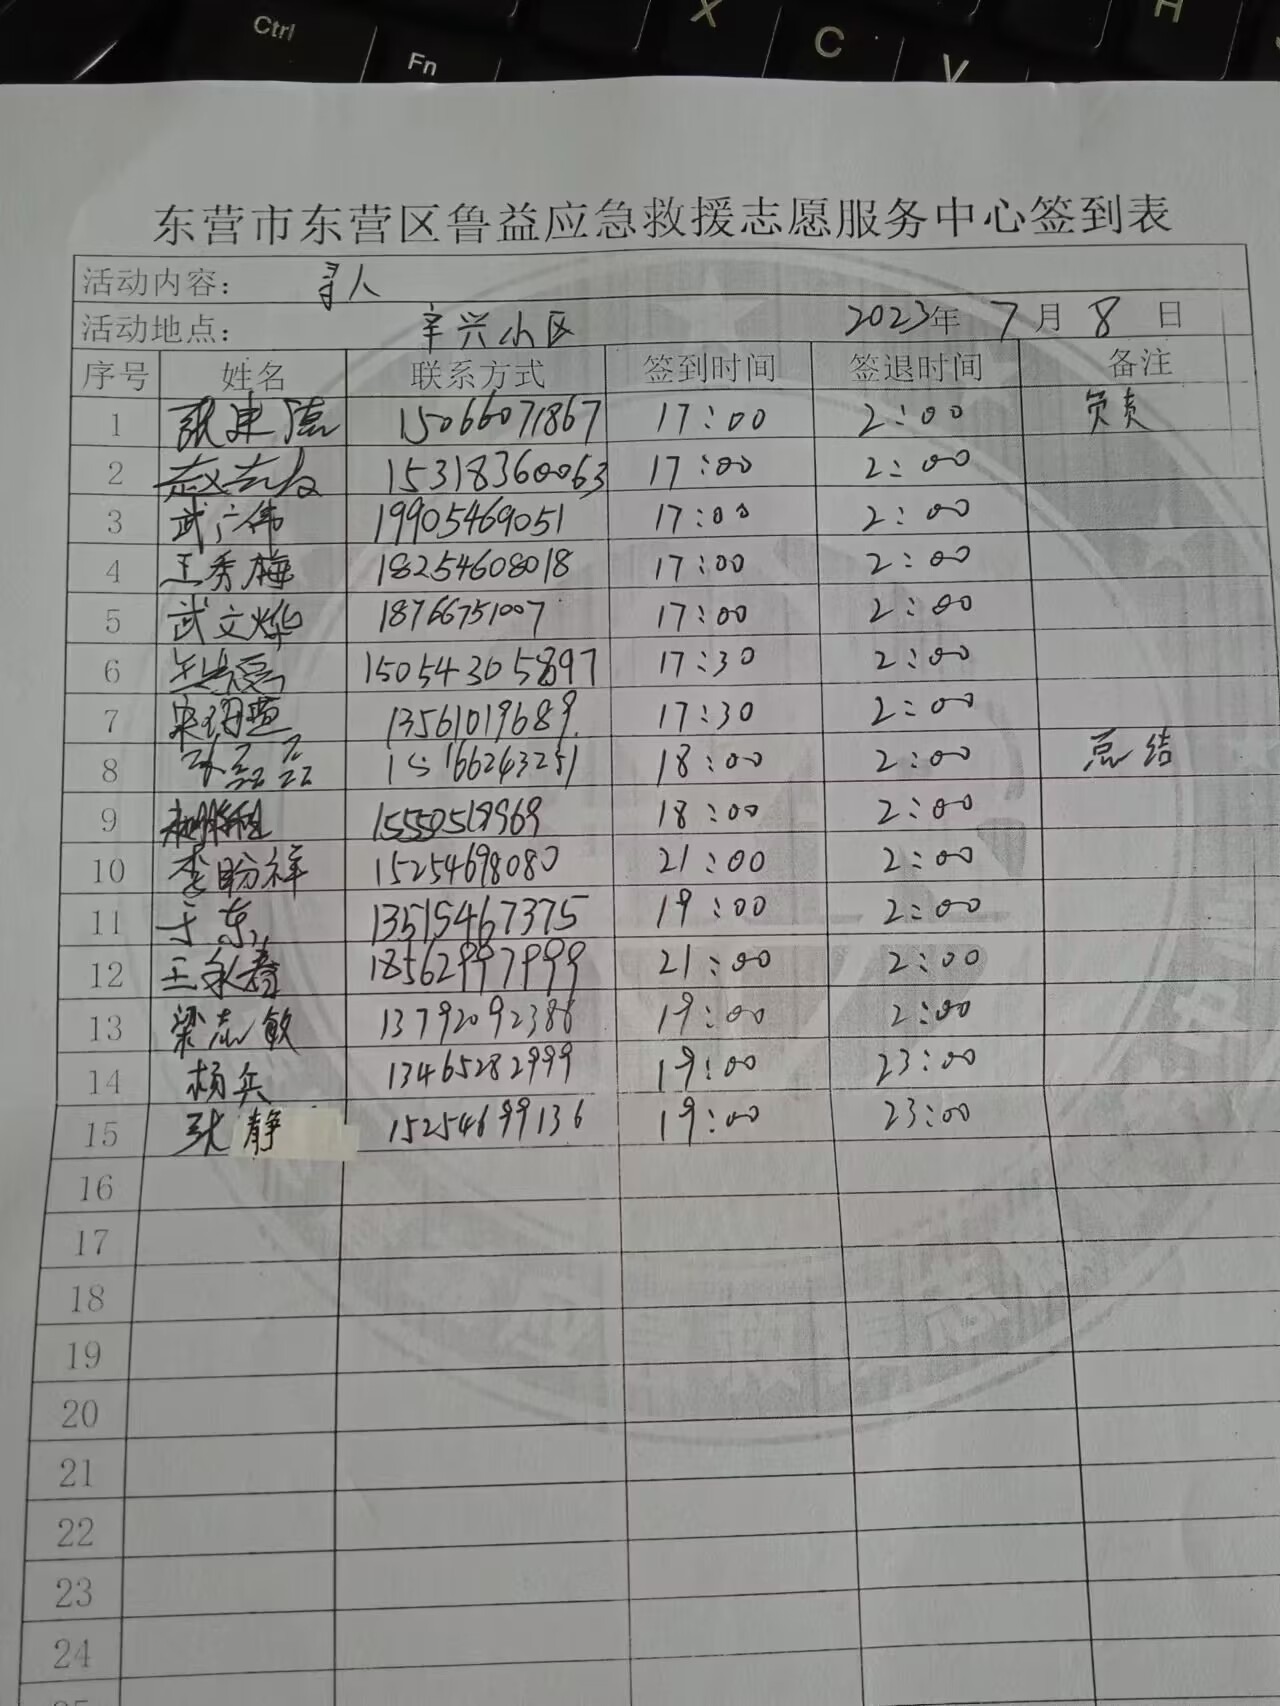 Ctrl
Fn
X
C
V
H
东营市东营区鲁益应急救援志愿服务中心签到表
活动内容： 寻人
活动地点： 辛兴小区 2023年 7 月 8 日
序号 姓名 联系方式 签到时间 签退时间 备注
1 张建德 15066071867 17:00 2:00 负责
2 15318360063 17:00 2:00
3 武广伟 19905469051 17:00 2:00
4 王秀梅 18254608018 17:00 2:00
5 武文烨 18766751007 17:00 2:00
6 15054305897 17:30 2:00
7 13561019689 17:30 2:00
8 孙磊磊 15166243251 18:00 2:00 总结
9 15550519969 18:00 2:00
10 李盼祥 15254698080 21:00 2:00
11 于东 13515467375 19:00 2:00
12 王永春 18562997999 21:00 2:00
13 梁志敏 13792092386 19:00 2:00
14 杨兵 13465282999 19:00 23:00
15 张静 15254699136 19:00 23:00
16
17
18
19
20
21
22
23
24